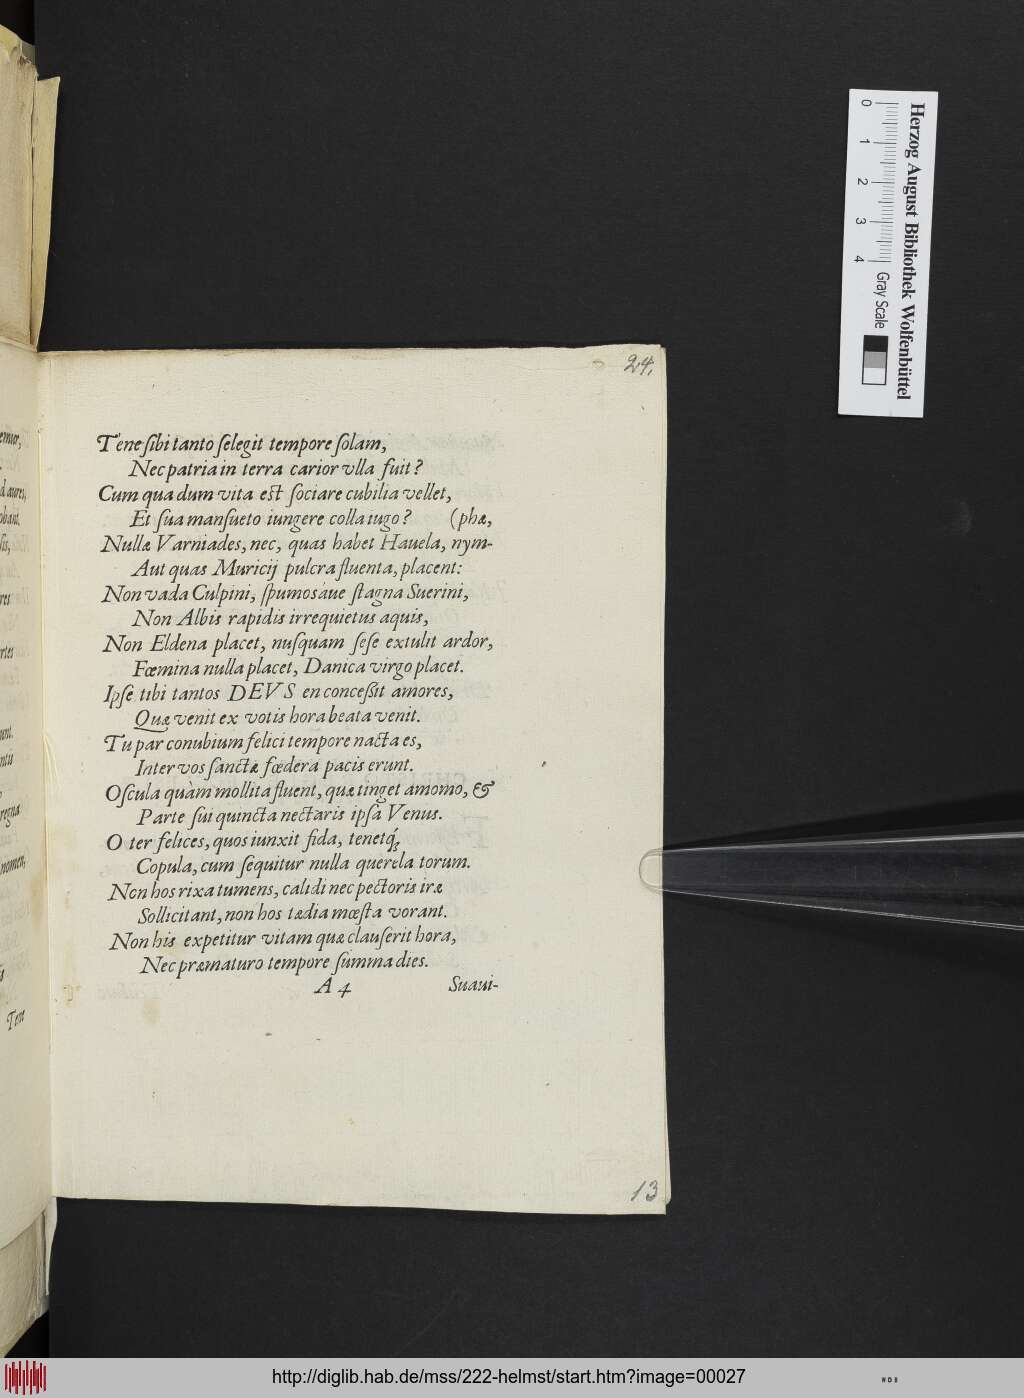 24.
Tene ſibi tanto ſelegit tempore ſolam,
Nec patria in terra carior vlla fuit?
Cum qua dum vita est ſociare cubilia vellet,
Et ſua manſueto iungere colla iugo? (phæ,
Nullæ Varniades, nec, quas habet Hauela, nym-
Aut quas Muricij pulcra fluenta, placent:
Non vada Culpini, ſpumosáue ſtagna Suerini,
Non Albis rapidis irrequietus aquis,
Non Eldena placet, nuſquam ſeſe extulit ardor,
Fœmina nulla placet, Danica virgo placet.
Ipſe tibi tantos DEVS en conceſsit amores,
Quæ venit ex votis hora beata venit.
Tu par conubium felici tempore nacta es,
Inter vos ſanctæ fœdera pacis erunt.
Oſcula quàm mollita fluent, quæ tinget amomo, &
Parte ſui quincta nectaris ipſa Venus.
O ter felices, quos iunxit fida, tenetq́;
Copula, cum ſequitur nulla querela torum.
Non hos rixa tumens, calidi nec pectoris iræ
Sollicitant, non hos tædia mœſta vorant.
Non his expetitur vitam quæ clauſerit hora,
Nec præmaturo tempore ſumma dies.
A 4 Suaui-
13
nomen,
regna
Tene
Herzog August Bibliothek Wolfenbüttel
0 1 2 3 4 Gray Scale
http://diglib.hab.de/mss/222-helmst/start.htm?image=00027